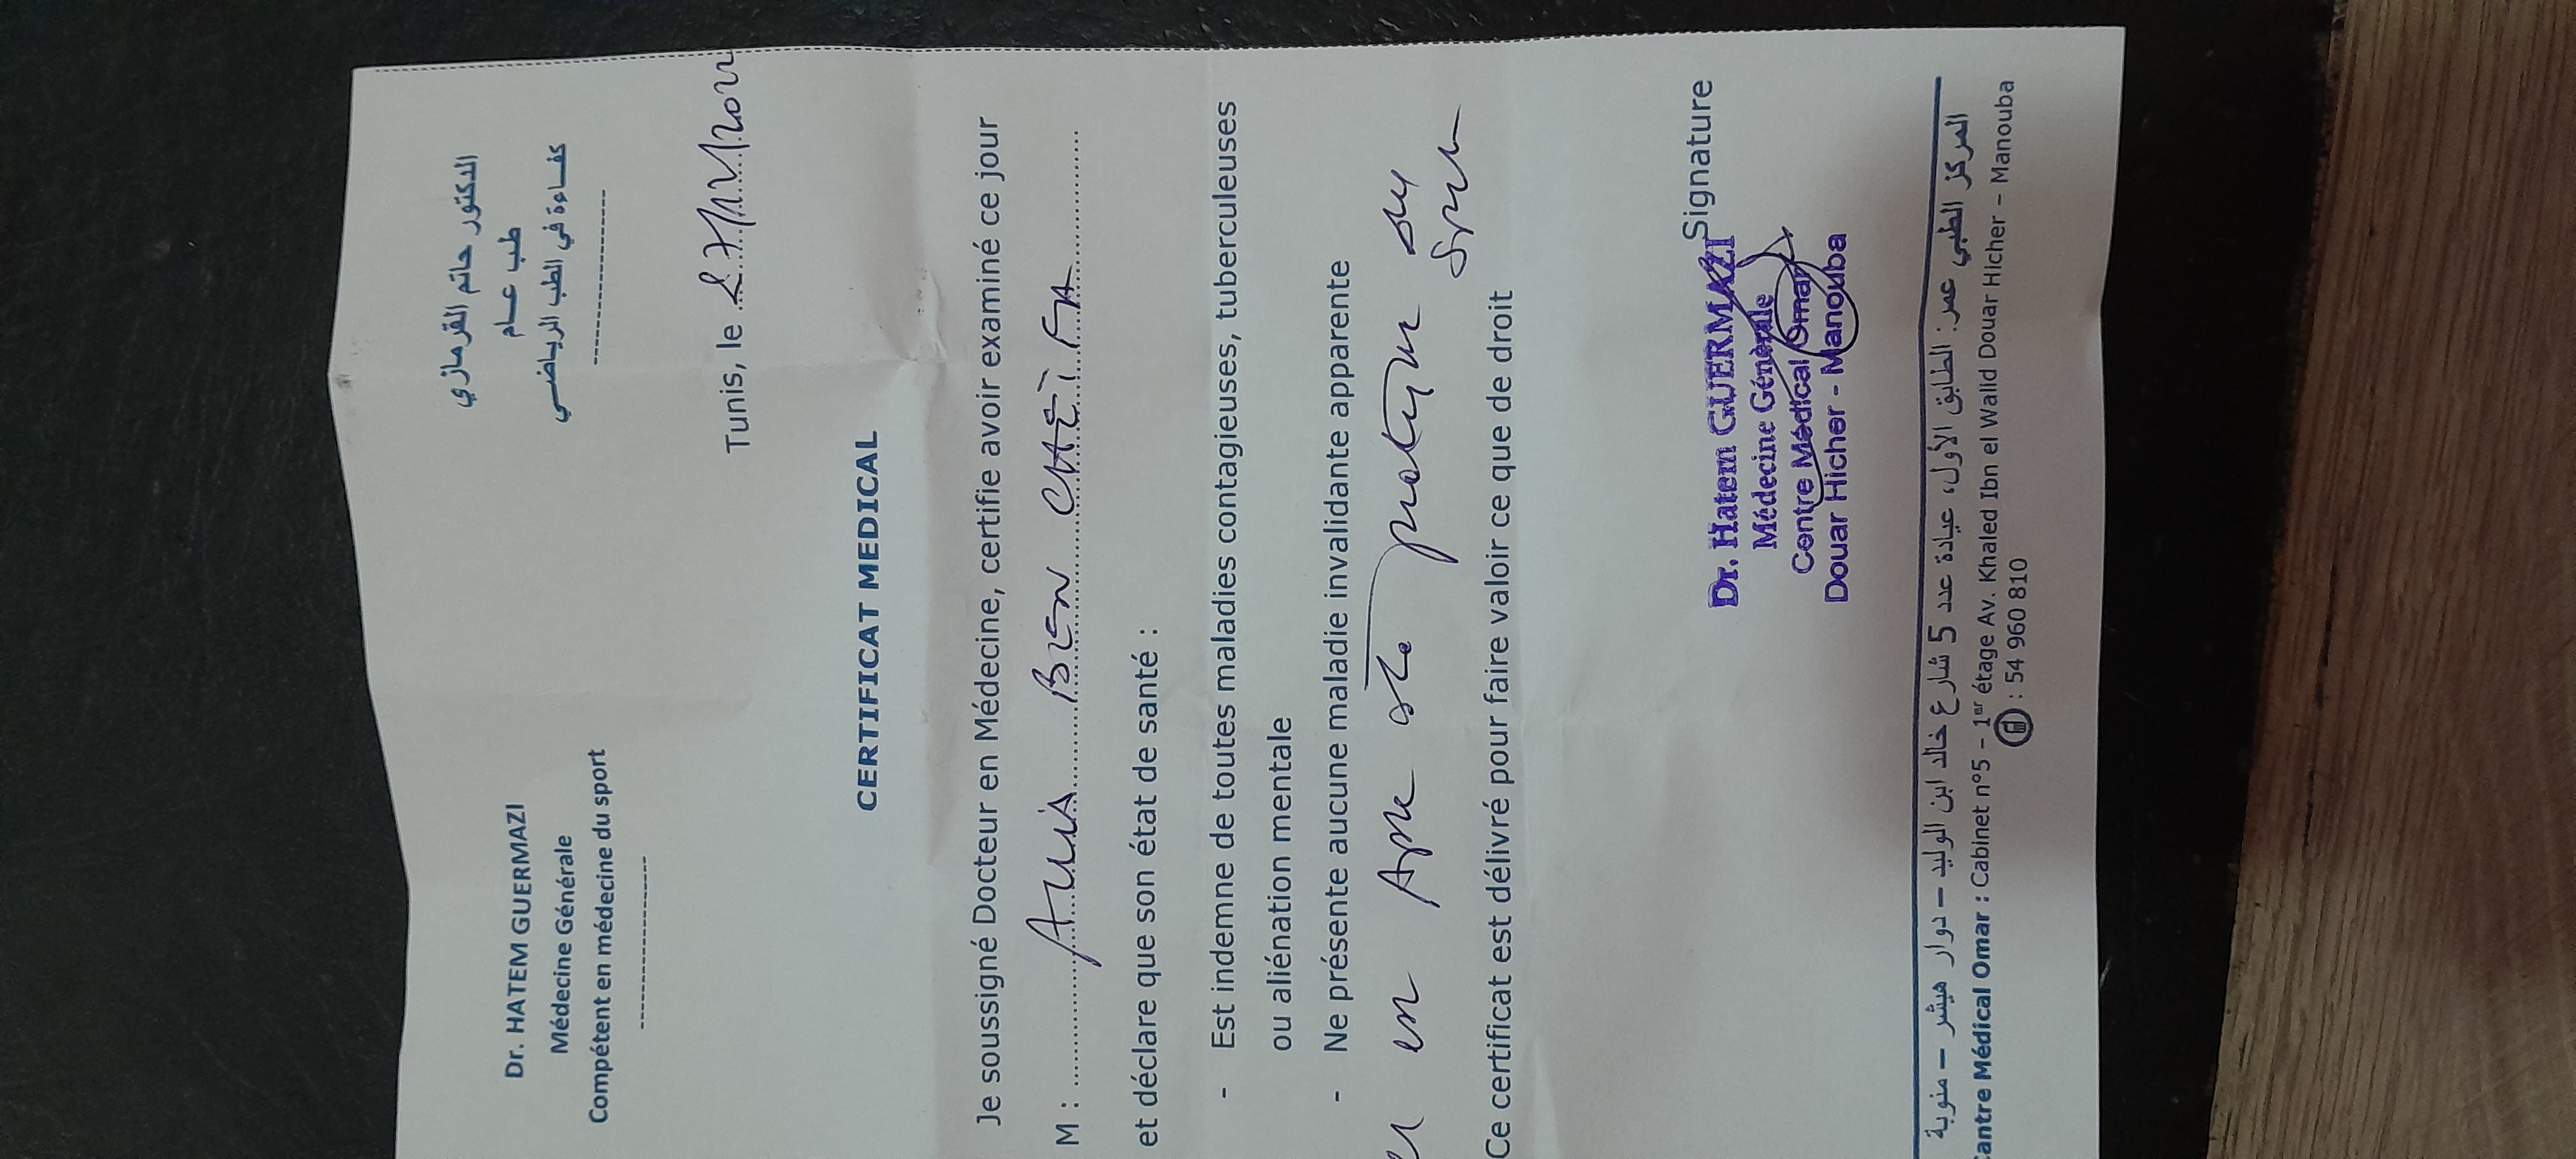 Dr. HATEM GUERMAZI
Médecine Générale
Compétent en médecine du sport
الدكتور حاتم القرمازي
طب عـــام
كفـــاءة في الطب الرياضـــي
Tunis, le
CERTIFICAT MEDICAL
Je soussigné Docteur en Médecine, certifie avoir examiné ce jour
M : BEN
et déclare que son état de santé :
- Est indemne de toutes maladies contagieuses, tuberculeuses
ou aliénation mentale
- Ne présente aucune maladie invalidante apparente
en
Ce certificat est délivré pour faire valoir ce que de droit
Signature
Dr. Hatem GUERMAZI
Médecine Générale
Centre Médical Omar
Douar Hicher - Manouba
المركز الطبي عمر: الطابق الأول، عيادة عدد 5 شارع خالد ابن الوليد – دوار هيشر – منوبة
Centre Médical Omar : Cabinet n°5 – 1er étage Av. Khaled Ibn el Walid Douar Hicher – Manouba
: 54 960 810